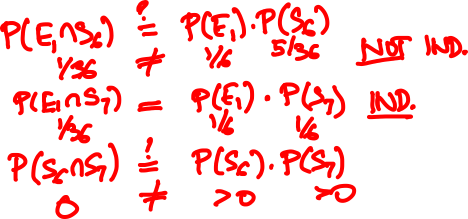 P(E₁∩S₆) ≟ P(E₁)·P(S₆)
1/36 ≠ 1/6 5/36 NOT IND.
P(E₁∩S₇) = P(E₁)·P(S₇) IND.
1/36 1/6 1/6
P(S₆∩S₇) ≟ P(S₆)·P(S₇)
0 ≠ >0 >0